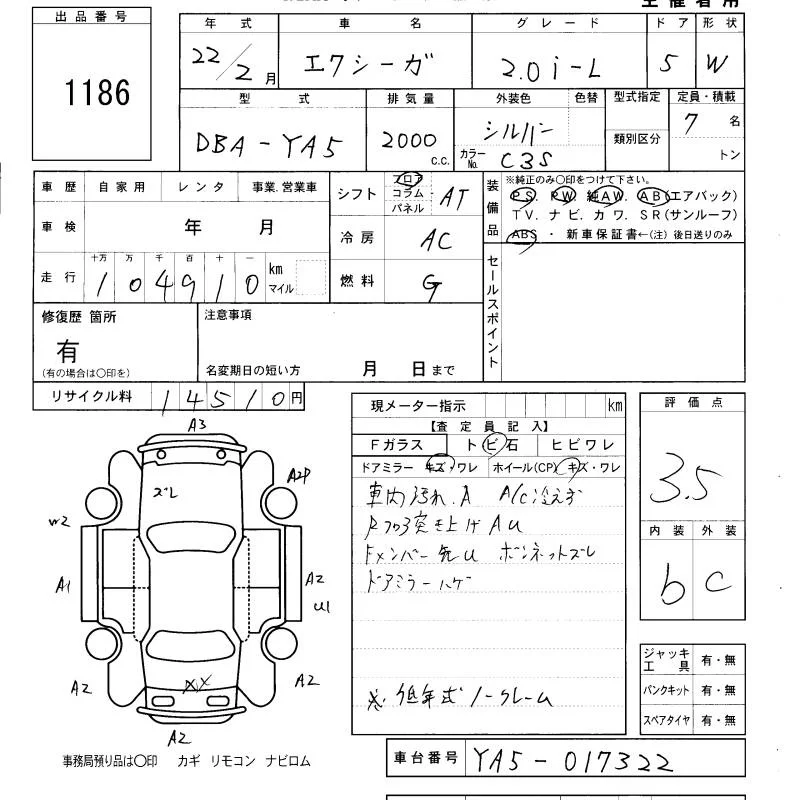 出品番号
1186
年式 車名 グレード ドア 形状
22/2月 エクシーガ 2.0i-L 5 W
型式 排気量 外装色 色替 型式指定 定員・積載
DBA-YA5 2000c.c. シルバー 7名
カラーNo. C3S 類別区分 トン
車歴 自家用 レンタ 事業.営業車
車検 年 月
走行 十万 万 千 百 十 一
104910 km マイル
シフト フロア コラム パネル AT
冷房 AC
燃料 G
装備品
※純正のみ○印をつけて下さい。
PS. PW. 純AW. AB(エアバック)
TV. ナビ. カワ. SR(サンルーフ)
ABS ・ 新車保証書←(注) 後日送りのみ
セールスポイント
修復歴 箇所
有
(有の場合は○印を)
注意事項
名変期日の短い方 月 日まで
リサイクル料 14510円
現メーター指示 km
【査定員記入】
Fガラス トビ石 ヒビワレ
ドアミラー キズ・ワレ ホイール(CP) キズ・ワレ
車内汚れ.A A/C冷えず
突き上げ AU
Fメンバー ボンネットズレ
ドアミラーハゲ
※低年式ノークレーム
評価点
3.5
内装 外装
b C
ジャッキ工具 有・無
パンクキット 有・無
スペアタイヤ 有・無
A3
ズレ
A2P
W2
A1
A2
U1
A2
XX
A2
A2
事務局預り品は○印 カギ リモコン ナビロム
車台番号 YA5-017322